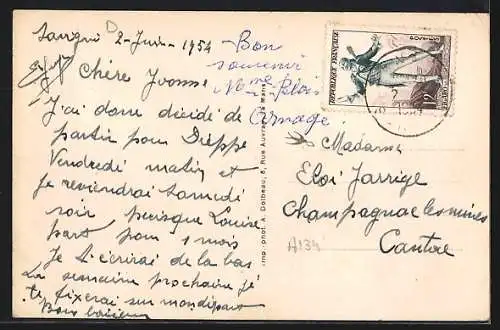 Savigné 2-Juin-1954
Chère Yvonne
J'ai donc décidé de
partir pour Dieppe
Vendredi matin et
je reviendrai Samedi
soir puisque Louise
part pour 1 mois
Je t'écrirai de la bas
La semaine prochaine je
te fixerai sur mon départ
Bons baisers
Bon
souvenir
Mme Blois
Arnage
Imp. phot. A. Dolbeau, 6, Rue Auvray, Le Mans
REPUBLIQUE FRANÇAISE
POSTES
12
Madame
Eloi Jarrige
Champagnac les mines
Cantal
A134